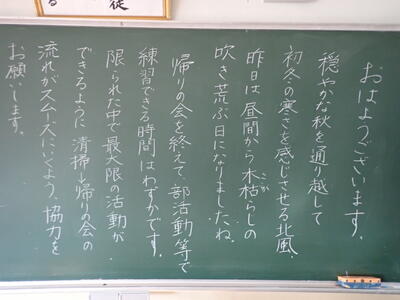 徒
る
おはようございます。
穏やかな秋を通り越して
初冬の寒さを感じさせる北風、
昨日は昼間から木枯らしの
こが
吹き荒ぶ日になりましたね。
帰りの会を終えて、部活動等で
練習できる時間はわずかです。
限られた中で最大限の活動が
できるように 清掃→帰りの会の
流れがスムーズにいくよう、協力を
お願いします。